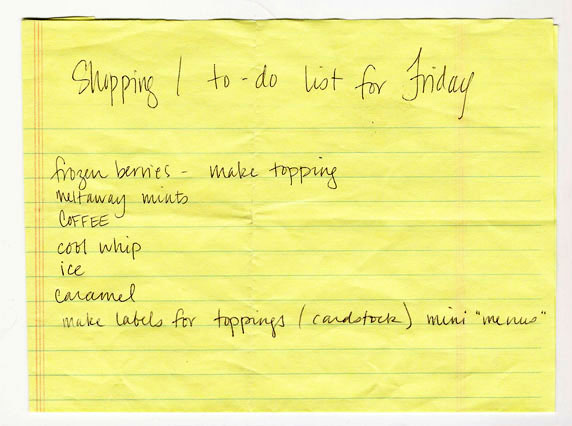 Shopping / to-do list for Friday
frozen berries - make topping
meltaway mints
COFFEE
cool whip
ice
caramel
make labels for toppings (cardstock) mini "menus"